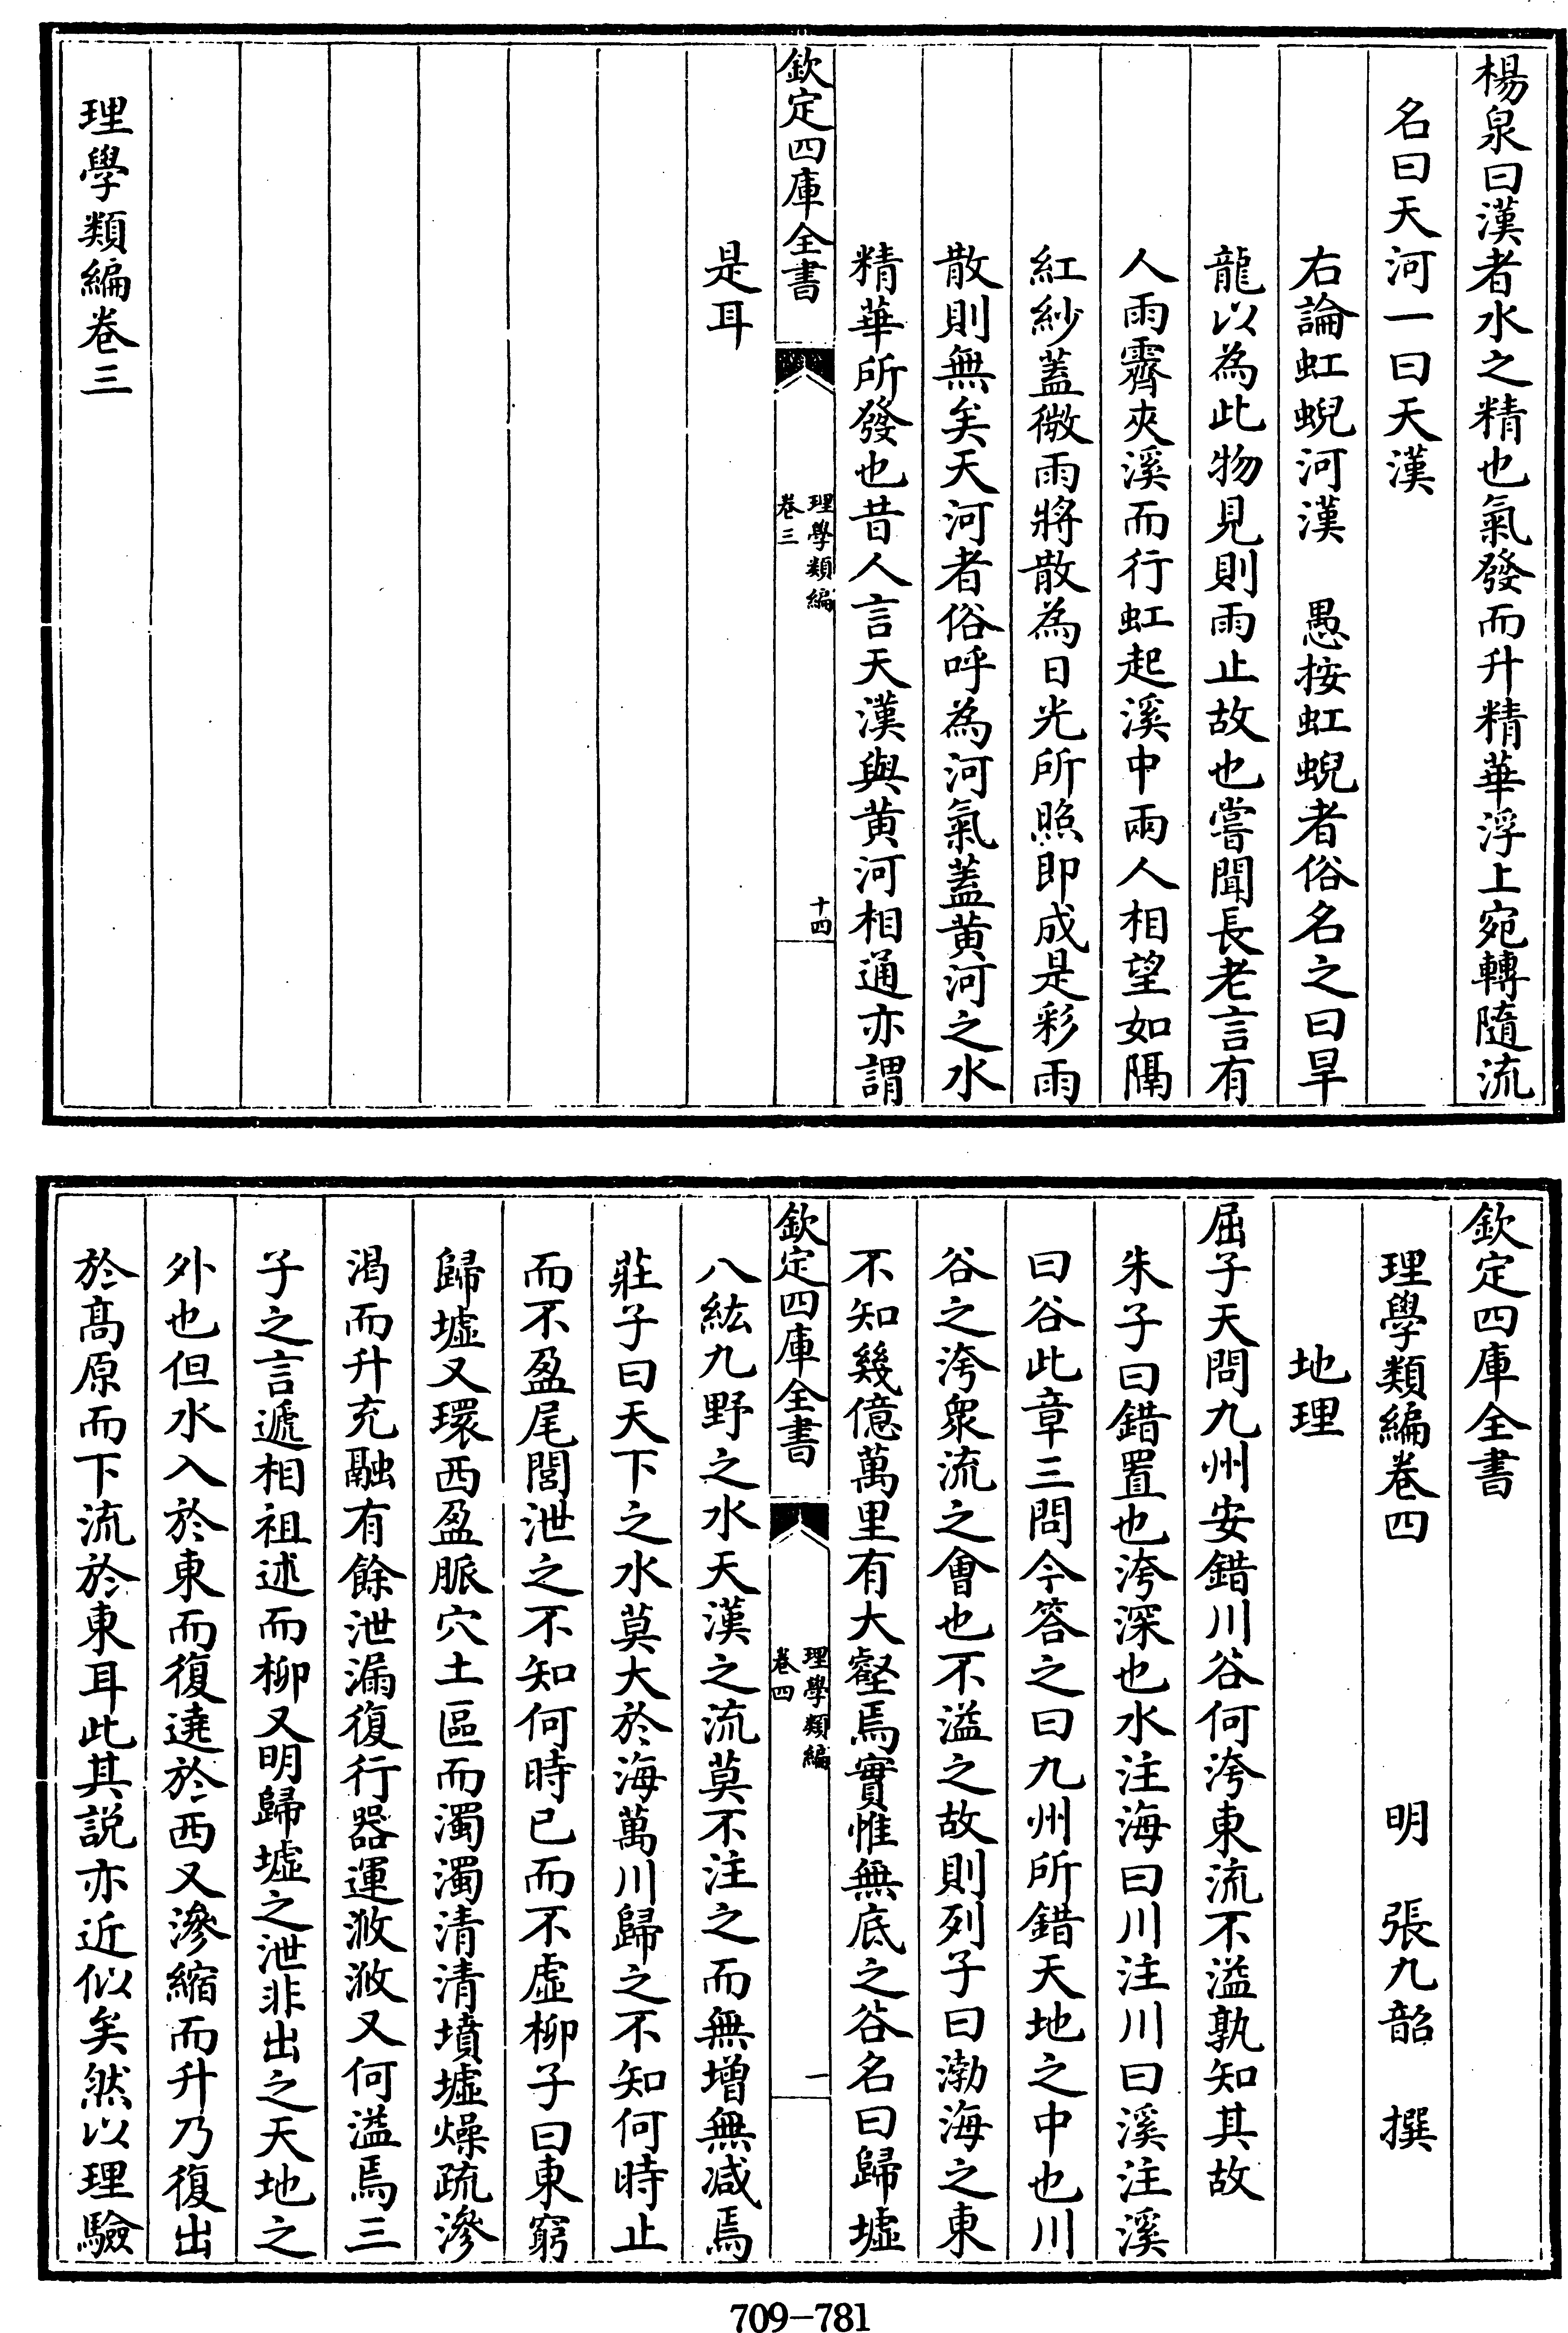 楊泉曰漢者水之精也氣發而升精華浮上宛轉隨流
名曰天河一曰天漢
右論虹蜺河漢　愚按虹蜺者俗名之曰旱
龍以為此物見則雨止故也嘗聞長老言有
人雨霽夾溪而行虹起溪中兩人相望如隔
紅紗蓋微雨將散為日光所照即成是彩雨
散則無矣天河者俗呼為河氣蓋黄河之水
精華所發也昔人言天漢與黄河相通亦謂
欽定四庫全書
理學類編
卷三
十四
是耳
理學類編卷三
欽定四庫全書
理學類編卷四
明　張九韶　撰
地理
屈子天問九州安錯川谷何洿東流不溢孰知其故
朱子曰錯置也洿深也水注海曰川注川曰溪注溪
曰谷此章三問今答之曰九州所錯天地之中也川
谷之洿衆流之會也不溢之故則列子曰渤海之東
不知幾億萬里有大壑焉實惟無底之谷名曰歸墟
欽定四庫全書
理學類編
卷四
一
八紘九野之水天漢之流莫不注之而無增無减焉
莊子曰天下之水莫大於海萬川歸之不知何時止
而不盈尾閭泄之不知何時已而不虛柳子曰東窮
歸墟又環西盈脈穴土區而濁濁清清墳墟燥疏滲
渴而升充融有餘泄漏復行器運浟浟又何溢焉三
子之言遞相祖述而柳又明歸墟之泄非出之天地之
外也但水入於東而復遶於西又滲縮而升乃復出
於髙原而下流於東耳此其説亦近似矣然以理驗
709-781